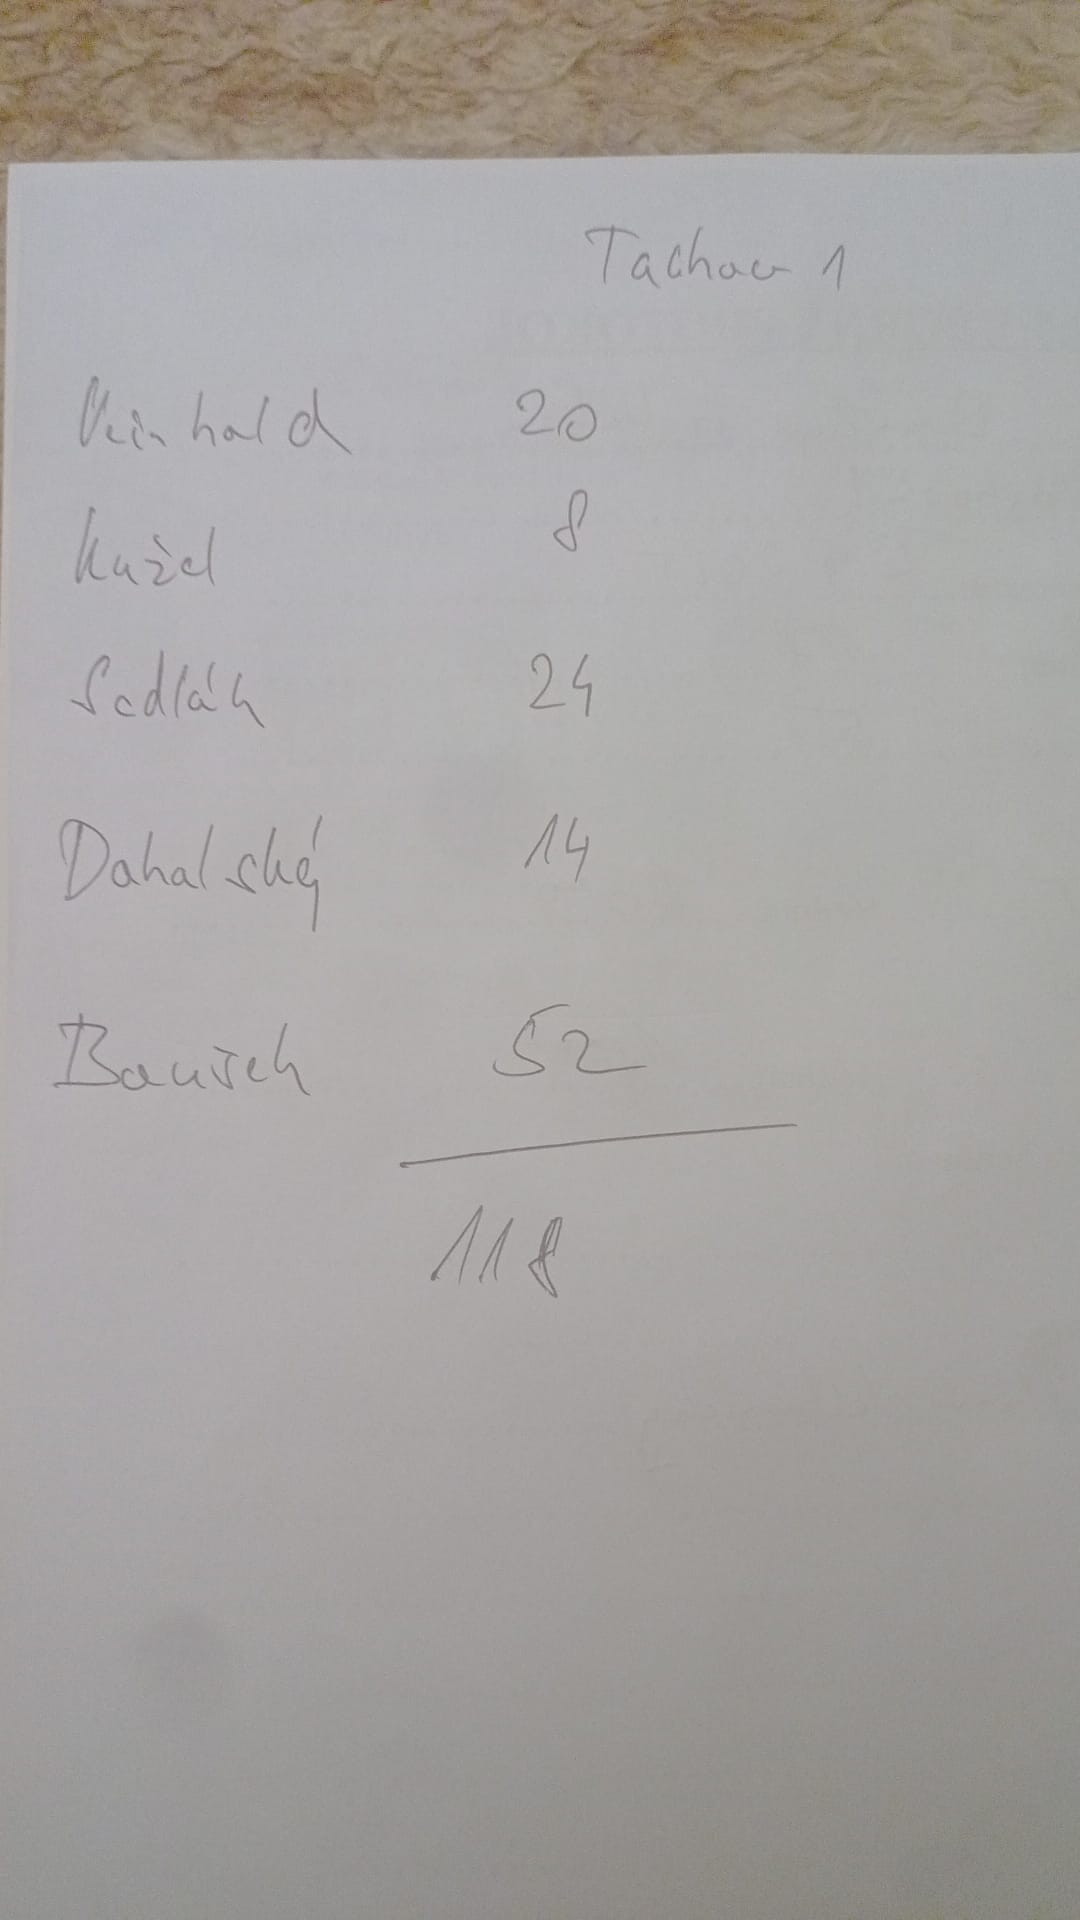 Tachov 1
Veinhald 20
Kužel 8
Sedlák 24
Dahalský 14
52
118